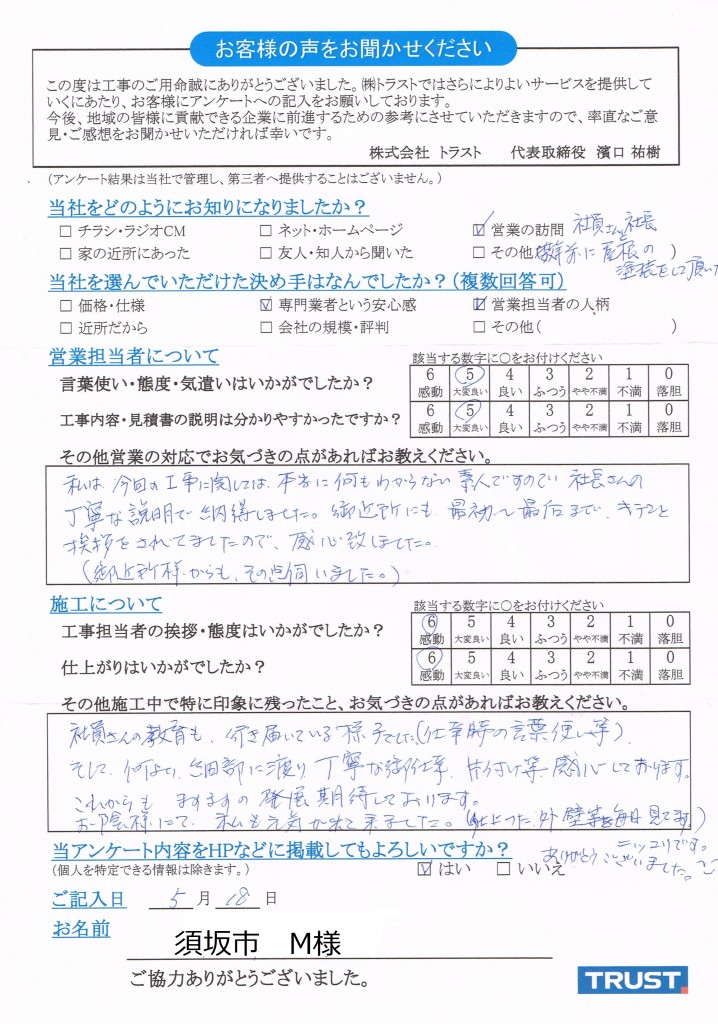 お客様の声をお聞かせください
この度は工事のご用命誠にありがとうございました。㈱トラストではさらによりよいサービスを提供して
いくにあたり、お客様にアンケートへの記入をお願いしております。
今後、地域の皆様に貢献できる企業に前進するための参考にさせていただきますので、率直なご意
見・ご感想をお聞かせいただければ幸いです。
株式会社 トラスト 代表取締役 濱口 祐樹
(アンケート結果は当社で管理し、第三者へ提供することはございません。)
当社をどのようにお知りになりましたか？
□ チラシ・ラジオCM □ ネット・ホームページ ☑ 営業の訪問 社員さんと社長
□ 家の近所にあった □ 友人・知人から聞いた □ その他 に屋根の )
塗装をして頂い
当社を選んでいただけた決め手はなんでしたか？(複数回答可)
□ 価格・仕様 ☑ 専門業者という安心感 ☑ 営業担当者の人柄
□ 近所だから □ 会社の規模・評判 □ その他( )
営業担当者について 該当する数字に○をお付けください
言葉使い・態度・気遣いはいかがでしたか？ 6 5 4 3 2 1 0
感動 大変良い 良い ふつう やや不満 不満 落胆
工事内容・見積書の説明は分かりやすかったですか？ 6 5 4 3 2 1 0
感動 大変良い 良い ふつう やや不満 不満 落胆
その他営業の対応でお気づきの点があればお教えください。
私は今回の工事に関しては、本当に何もわからない素人ですので社長さんの
丁寧な説明で納得しました。御近所にも、最初〜最后まで、キチンと
挨拶をされてましたので、感心致しました。
(御近所様からも、その点伺いました。)
施工について 該当する数字に○をお付けください
工事担当者の挨拶・態度はいかがでしたか？ 6 5 4 3 2 1 0
感動 大変良い 良い ふつう やや不満 不満 落胆
仕上がりはいかがでしたか？ 6 5 4 3 2 1 0
感動 大変良い 良い ふつう やや不満 不満 落胆
その他施工中で特に印象に残ったこと、お気づきの点があればお教えください。
社員さんの教育も、行き届いている様子でした(仕事時の言葉使い等)
そして、何より、細部に渡り丁寧な御仕事、片付け等感心しております。
これからもますますの発展期待しております。
お陰様にて、私も元気が出て来ました。(仕上った外壁等を毎日見てます)
ニッコリです。
ありがとうございました。
当アンケート内容をHPなどに掲載してもよろしいですか？
(個人を特定できる情報は除きます。) ☑ はい □ いいえ
ご記入日 5 月 18 日
お名前 須坂市 M様
ご協力ありがとうございました。
TRUST